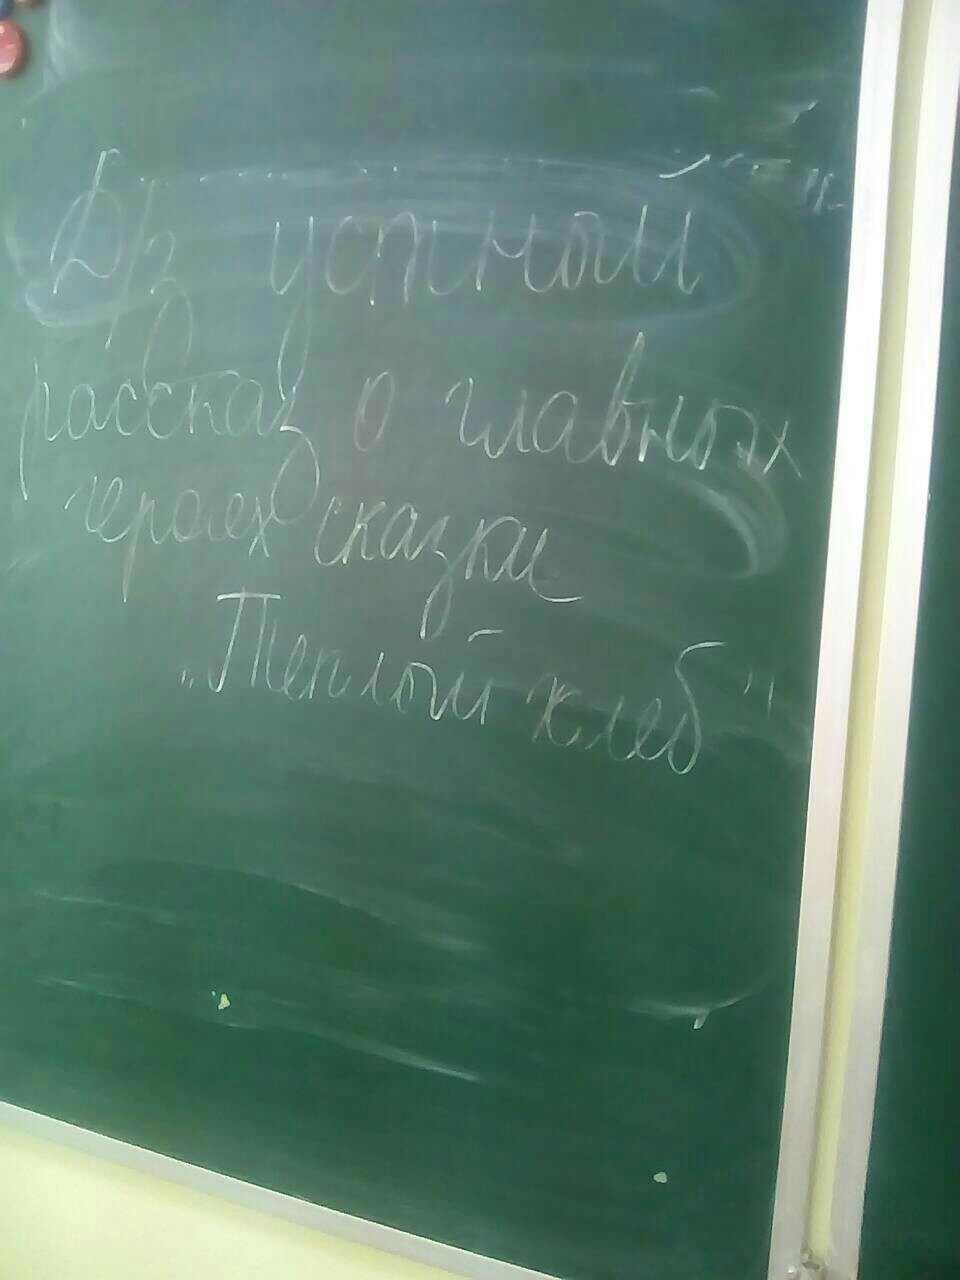 Д/з устный
рассказ о главных
героях сказки
"Теплый хлеб"